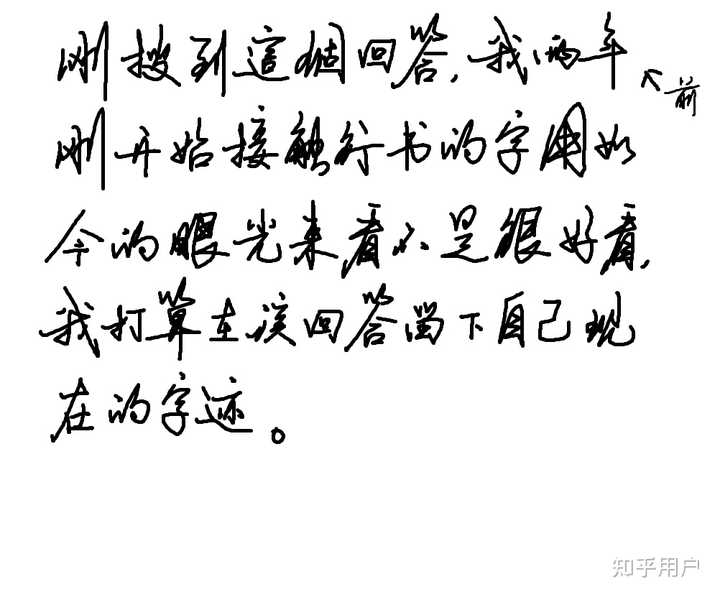 刚搜到這個回答,我两年前
刚开始接触行书的字用如
今的眼光来看不是很好看,
我打算在该回答留下自己现
在的字迹。
知乎用户